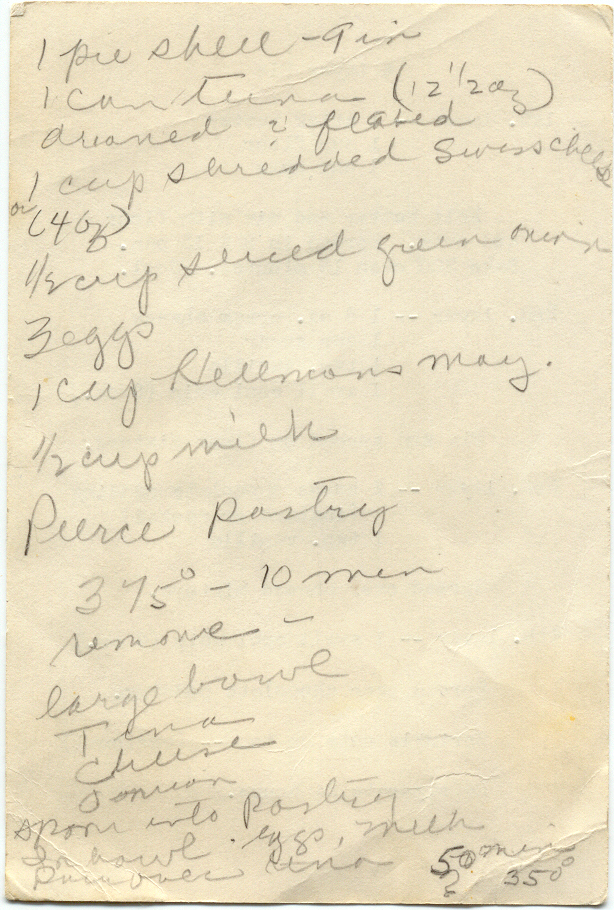 1 pie shell - 9 in
1 can tuna (12 1/2 oz)
drained & flaked
1 cup shredded Swiss cheese
or (4 oz)
1/2 cup sliced green onion
3 eggs
1 cup Hellmans may.
1/2 cup milk
Pierce pastry
375° - 10 min
remove -
large bowl
Tuna
Cheese
Onion
spoon into Pastry
In bowl eggs, milk
Pour over tuna 50 min
350°